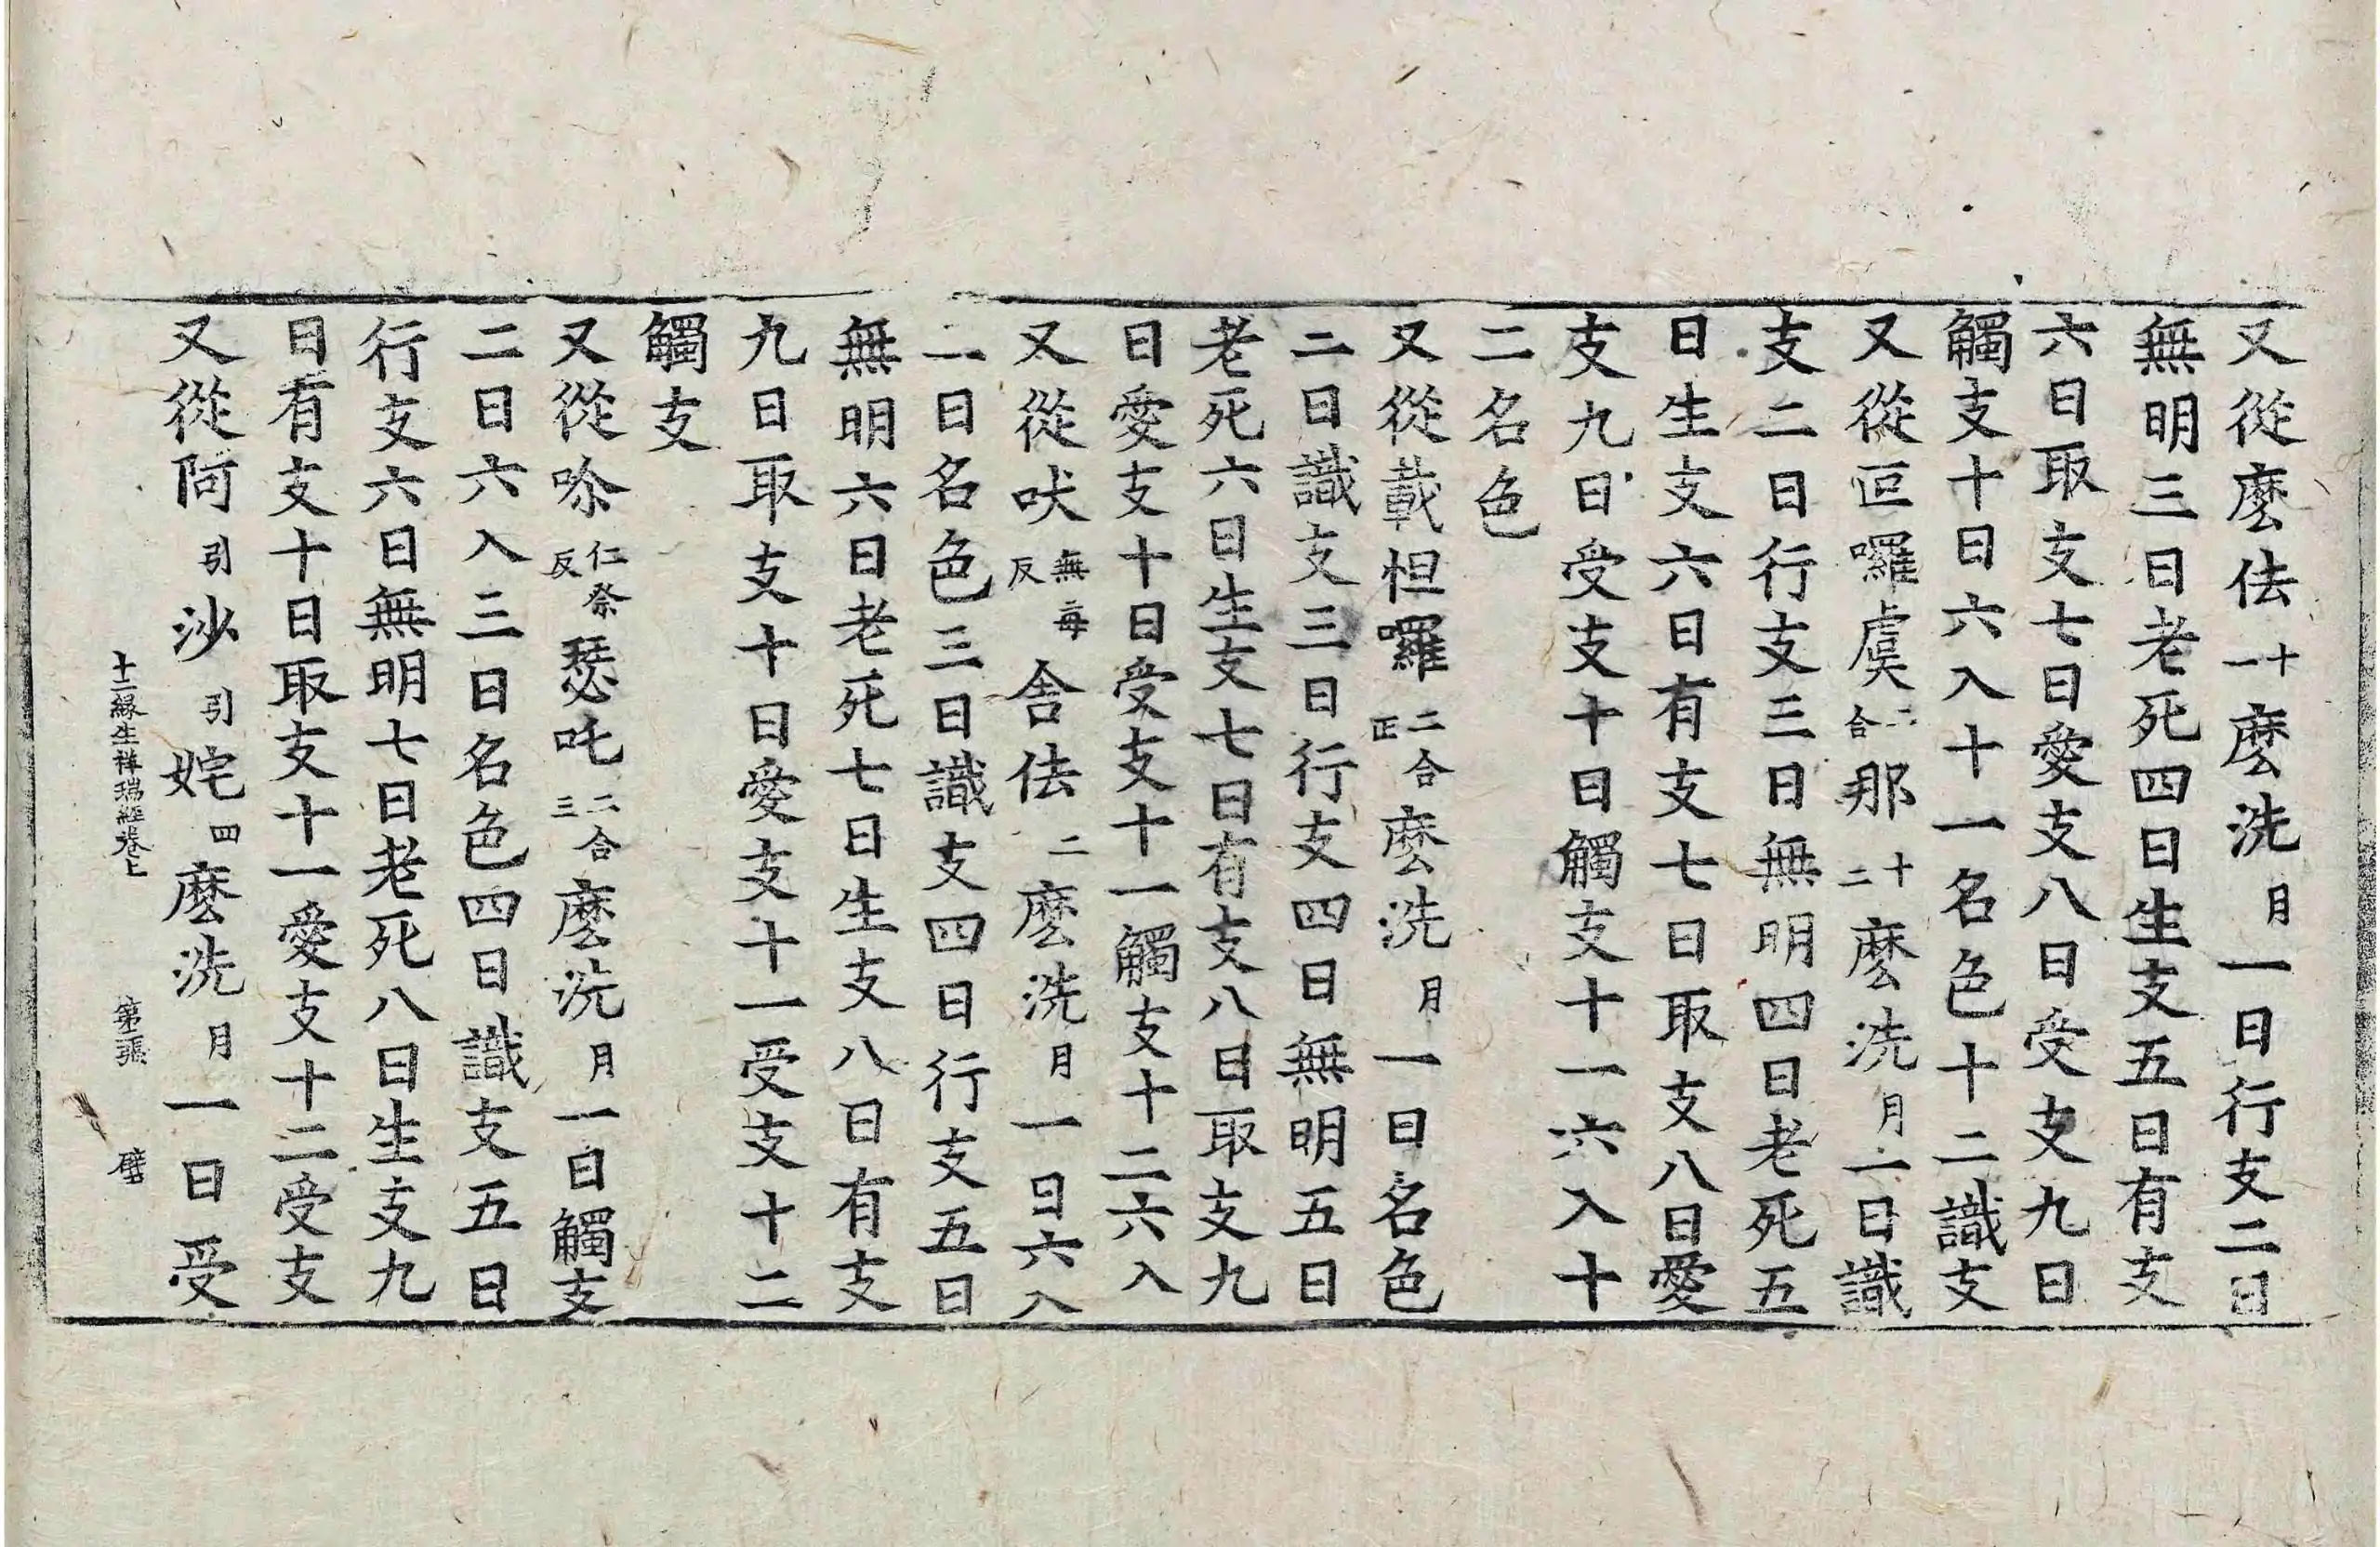 又從麽佉十一麽洗月一日行支二日
無明三日老死四日生支五日有支
六日取支七日愛支八日受支九日
觸支十日六入十一名色十二識支
又從叵囉虞二合那十二麽洗月一日識
支二日行支三日無明四日老死五
日生支六日有支七日取支八日愛
支九日受支十日觸支十一六入十
二名色
又從載怛囉二合正麽洗月一日名色
二日識支三日行支四日無明五日
老死六日生支七日有支八日取支九
日愛支十日受支十一觸支十二六入
又從吠無每反舍佉二麽洗月一日六入
二日名色三日識支四日行支五日
無明六日老死七日生支八日有支
九日取支十日愛支十一受支十二
觸支
又從㖠仁祭反瑟吒二合三麽洗月一日觸支
二日六入三日名色四日識支五日
行支六日無明七日老死八日生支九
日有支十日取支十一愛支十二受支
又從阿引沙引姹四麽洗月一日受
十二緣生祥瑞經卷上 第張